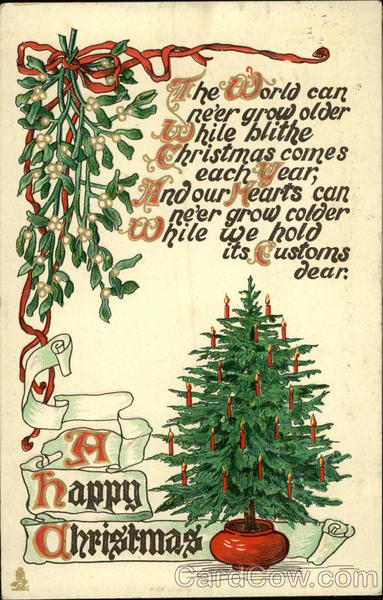 The World can
ne'er grow older
While blithe
Christmas comes
each Year,
And our Hearts can
ne'er grow colder
While we hold
its Customs
dear.
A
Happy
Christmas
CardCow.com